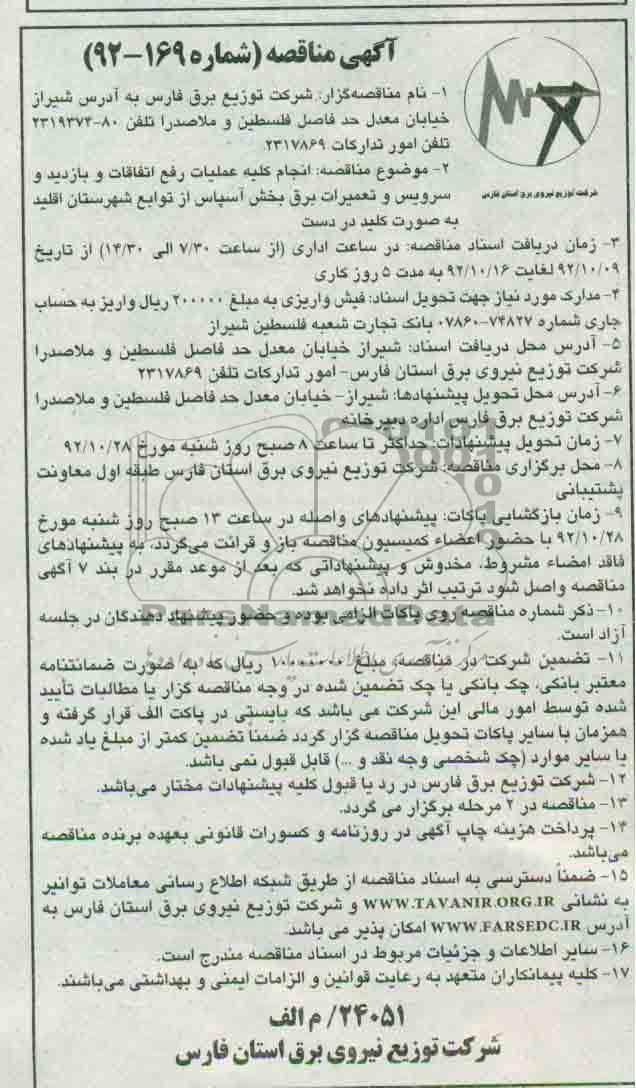 آگهی مناقصه (شماره ۱۶۹-۹۲)
۱- نام مناقصه‌گزار: شرکت توزیع برق فارس به آدرس شیراز
خیابان معدل حد فاصل فلسطین و ملاصدرا تلفن ۸۰-۲۳۱۹۳۷۴
تلفن امور تدارکات ۲۳۱۷۸۶۹
۲- موضوع مناقصه: انجام کلیه عملیات رفع اتفاقات و بازدید و
سرویس و تعمیرات برق بخش آسپاس از توابع شهرستان اقلید
به صورت کلید در دست
شرکت توزیع نیروی برق استان فارس
۳- زمان دریافت اسناد مناقصه: در ساعت اداری (از ساعت ۷/۳۰ الی ۱۴/۳۰) از تاریخ
۹۲/۱۰/۰۹ لغایت ۹۲/۱۰/۱۶ به مدت ۵ روز کاری
۴- مدارک مورد نیاز جهت تحویل اسناد: فیش واریزی به مبلغ ۲۰۰۰۰۰ ریال واریز به حساب
جاری شماره ۷۴۸۲۷-۰۷۸۶۰ بانک تجارت شعبه فلسطین شیراز
۵- آدرس محل دریافت اسناد: شیراز خیابان معدل حد فاصل فلسطین و ملاصدرا
شرکت توزیع نیروی برق استان فارس- امور تدارکات تلفن ۲۳۱۷۸۶۹
۶- آدرس محل تحویل پیشنهادها: شیراز- خیابان معدل حد فاصل فلسطین و ملاصدرا
شرکت توزیع برق فارس اداره دبیرخانه
۷- زمان تحویل پیشنهادات: حداکثر تا ساعت ۸ صبح روز شنبه مورخ ۹۲/۱۰/۲۸
۸- محل برگزاری مناقصه: شرکت توزیع نیروی برق استان فارس طبقه اول معاونت
پشتیبانی
۹- زمان بازگشایی پاکات: پیشنهادهای واصله در ساعت ۱۳ صبح روز شنبه مورخ
۹۲/۱۰/۲۸ با حضور اعضاء کمیسیون مناقصه باز و قرائت می‌گردد، به پیشنهادهای
فاقد امضاء مشروط، مخدوش و پیشنهاداتی که بعد از موعد مقرر در بند ۷ آگهی
مناقصه واصل شود ترتیب اثر داده نخواهد شد.
۱۰- ذکر شماره مناقصه روی پاکات الزامی بوده و حضور پیشنهاد دهندگان در جلسه
آزاد است.
ParsNamadData
۱۱- تضمین شرکت در مناقصه: مبلغ ریال که به صورت ضمانتنامه
معتبر بانکی، چک بانکی یا چک تضمین شده در وجه مناقصه گزار یا مطالبات تأیید
شده توسط امور مالی این شرکت می باشد که بایستی در پاکت الف قرار گرفته و
همزمان با سایر پاکات تحویل مناقصه گزار گردد ضمنا تضمین کمتر از مبلغ یاد شده
یا سایر موارد (چک شخصی وجه نقد و ...) قابل قبول نمی باشد.
۱۲- شرکت توزیع برق فارس در رد یا قبول کلیه پیشنهادات مختار می‌باشد.
۱۳- مناقصه در ۲ مرحله برگزار می گردد.
۱۴- پرداخت هزینه چاپ آگهی در روزنامه و کسورات قانونی بعهده برنده مناقصه
می‌باشد.
۱۵- ضمناً دسترسی به اسناد مناقصه از طریق شبکه اطلاع رسانی معاملات توانیر
به نشانی WWW.TAVANIR.ORG.IR و شرکت توزیع نیروی برق استان فارس به
آدرس WWW.FARSEDC.IR امکان پذیر می باشد.
۱۶- سایر اطلاعات و جزئیات مربوط در اسناد مناقصه مندرج است.
۱۷- کلیه پیمانکاران متعهد به رعایت قوانین و الزامات ایمنی و بهداشتی می‌باشند.
۲۴۰۵۱/ م الف
شرکت توزیع نیروی برق استان فارس